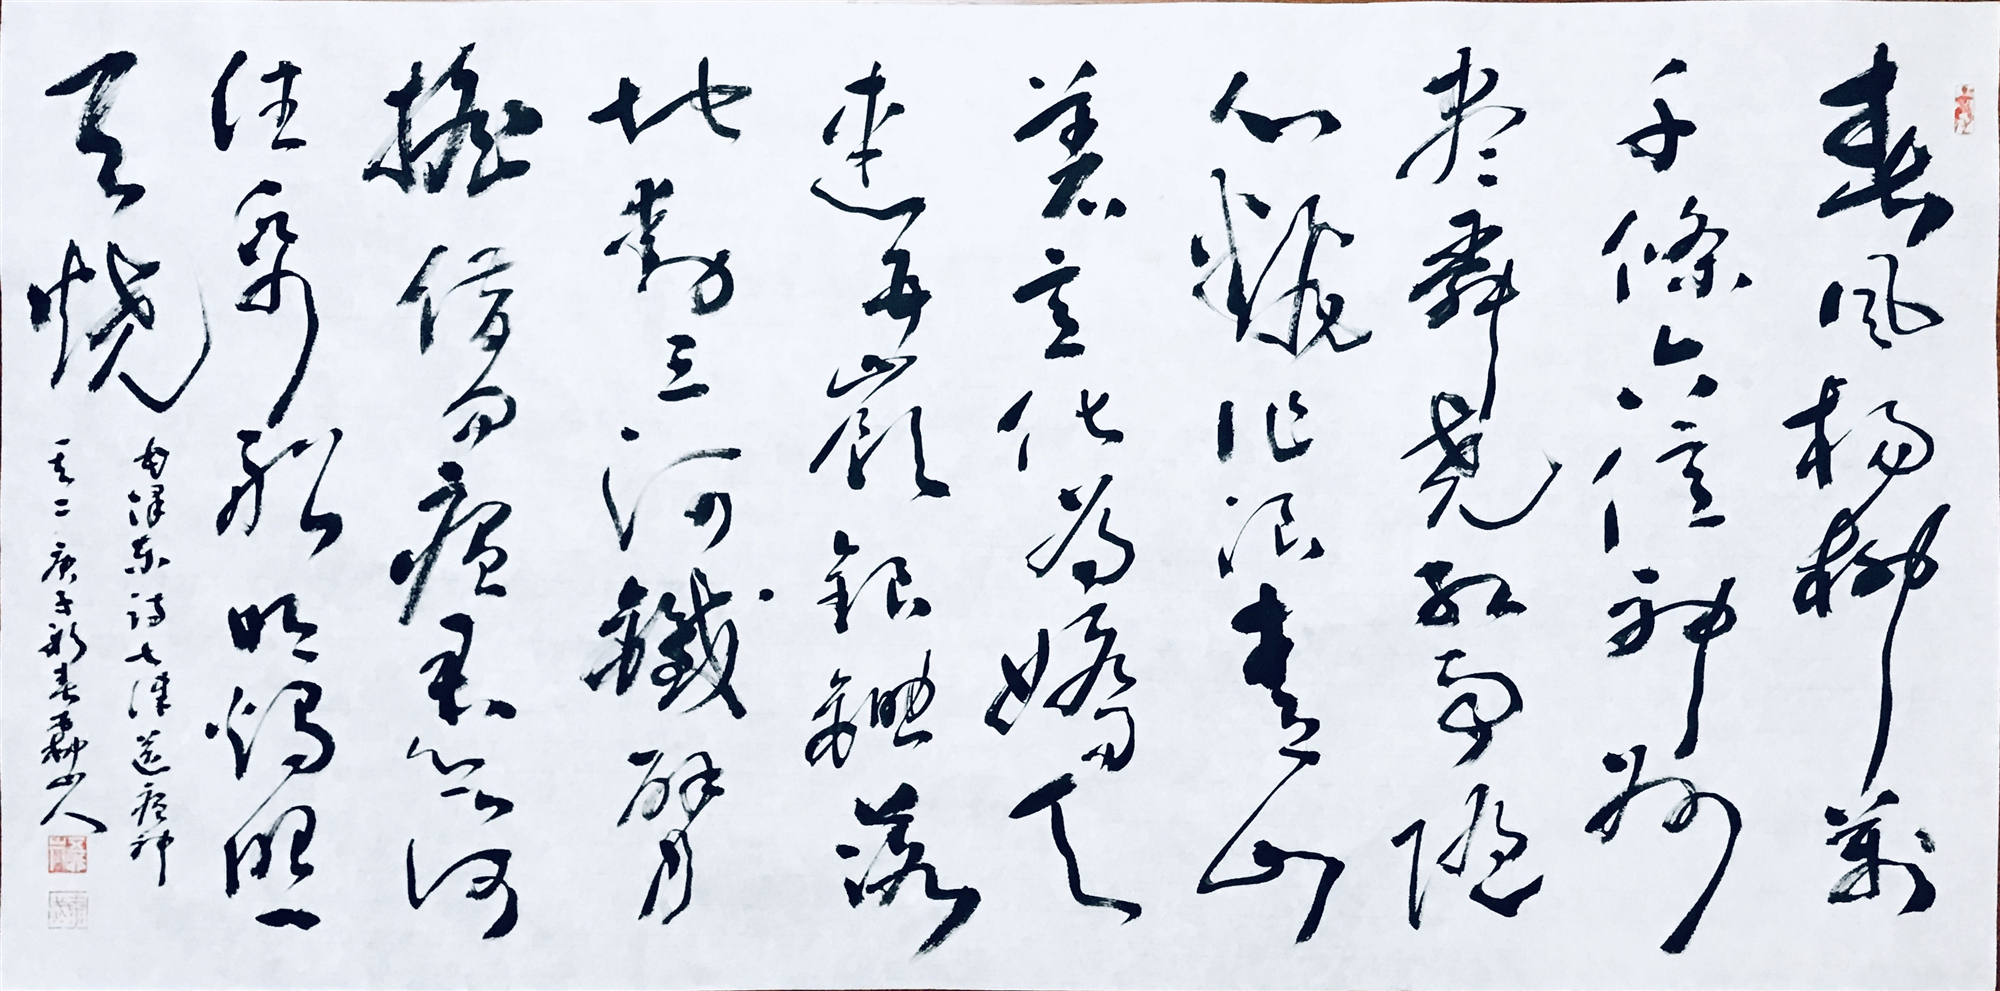 春風楊柳萬
千條六億神州
盡舜堯紅雨隨
心翻作浪青山
着意化為嬌天
連五嶺銀鋤落
地動三河鐵臂
搖借問瘟君欲何
往紙船明燭照
天燒
毛澤東詩七律送瘟神
其二庚子新春山人